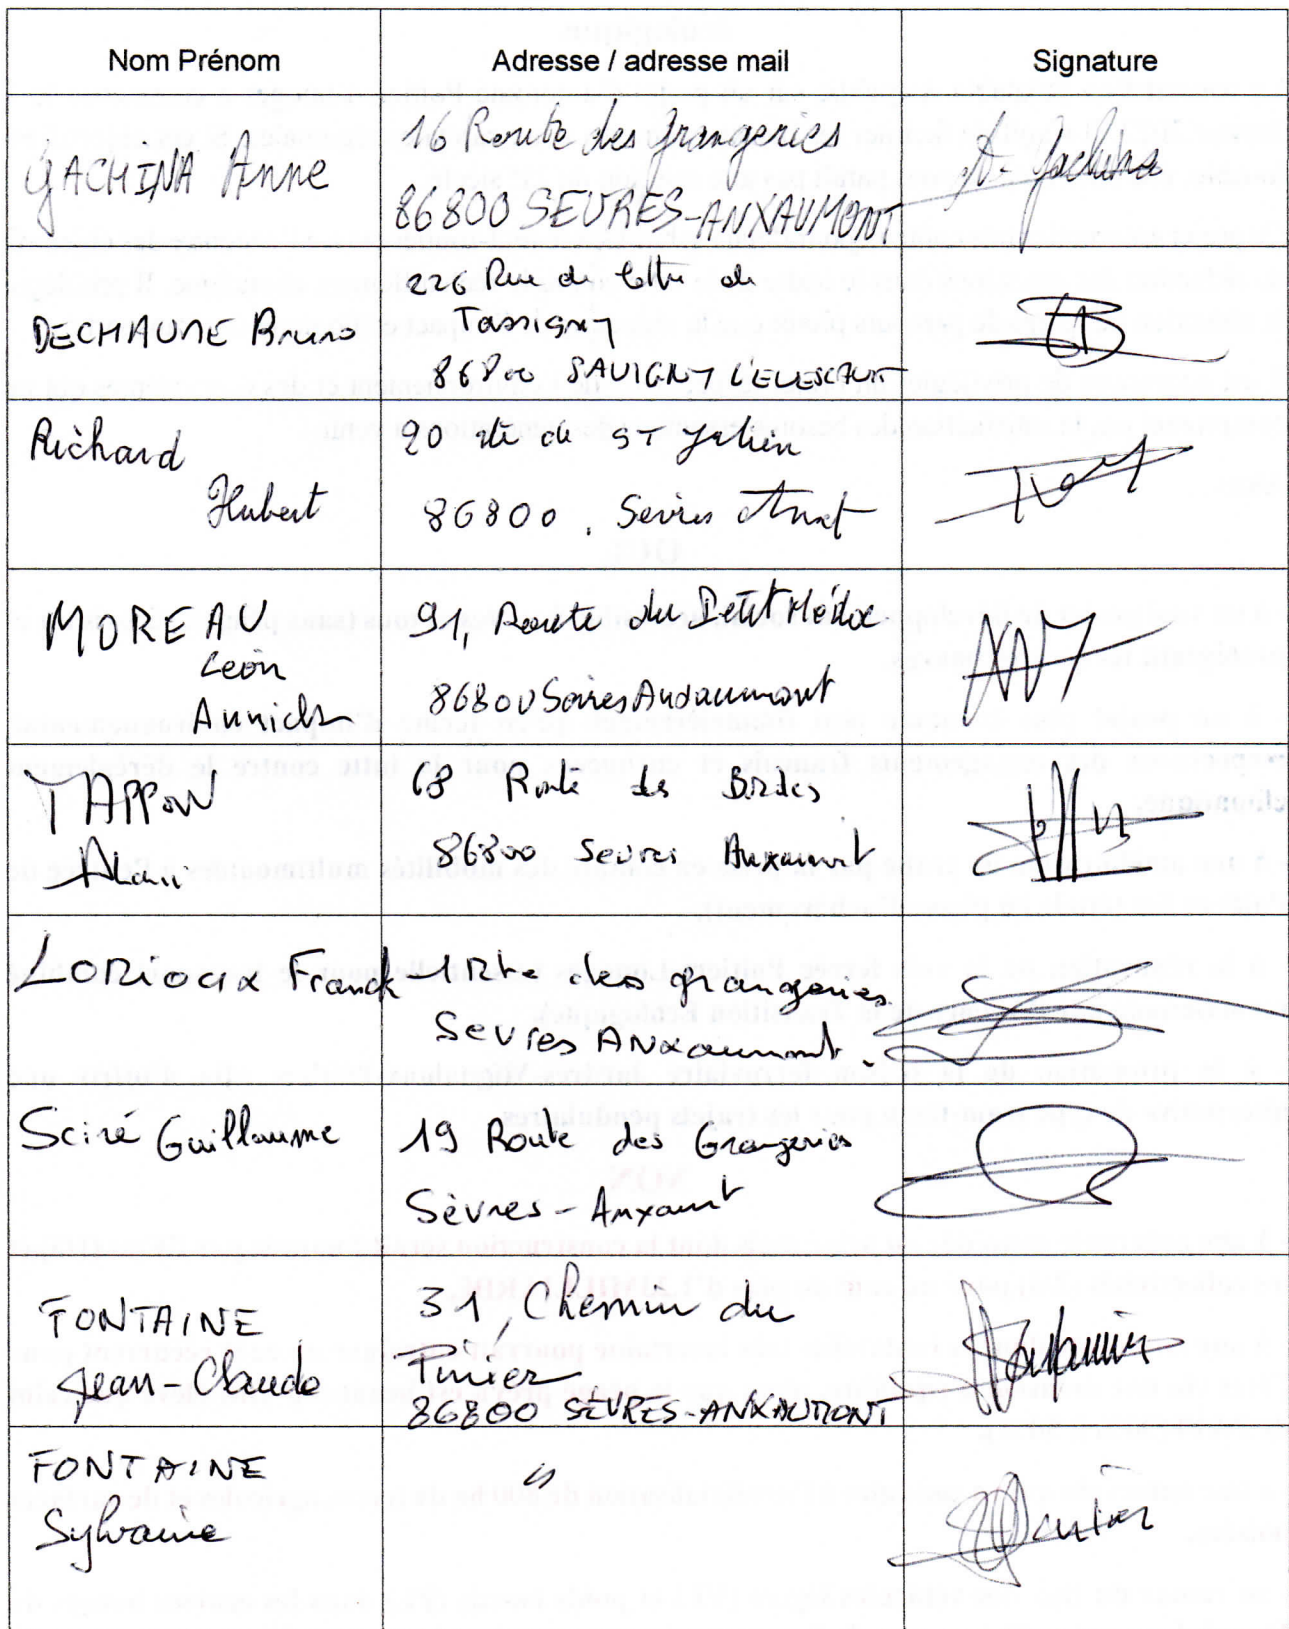 Nom Prénom
Adresse / adresse mail
Signature
YACHINA Anne
16 Route des grangeries
86800 SEVRES-ANXAUMONT
A. Yachina
DECHAUME Bruno
226 Rue de lattre de
Tassigny
86800 SAVIGNY L'EVESCAULT
Richard
Hubert
20 rte de ST Julien
86800. Sèvres
MOREAU
Léon
Annick
91, Route du Petit
86800 Sèvres Andaumont
TAPPON
Alain
68 Route des Bordes
86800 Sèvres Anxaumont
LORIOUX Franck
1 Rte des grangeries
Sevres Anxaumont.
Sciré Guillaume
19 Route des Grangeries
Sèvres - Anxaumont
FONTAINE
Jean-Claude
31, Chemin du
Pinier
86800 SÈVRES-ANXAUMONT
FONTAINE
Sylvaine
"